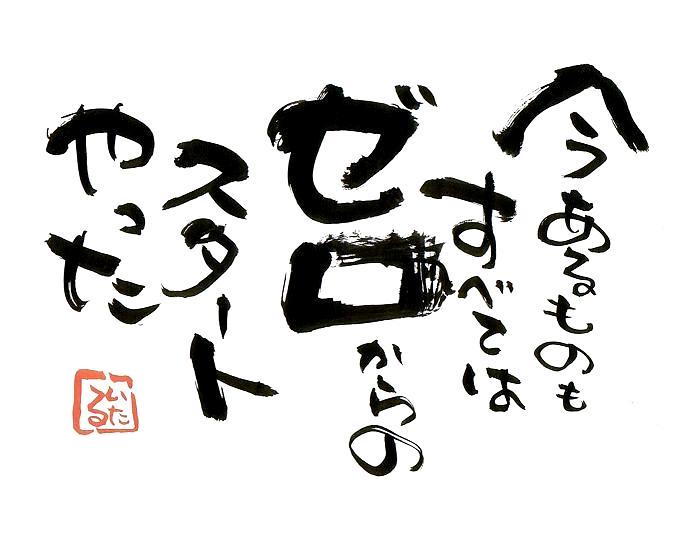 今あるものも
すべては
ゼロからの
スタート
やった
いたる